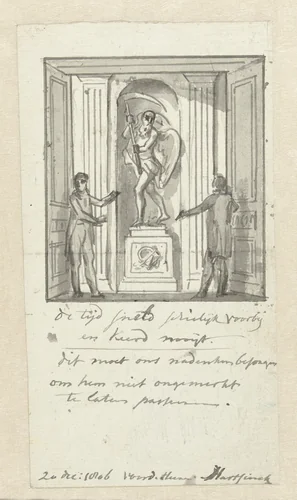 de tijd sneld schielijk voorbij
en keerd nooijt.
dit moet ons nadenken, bezorgen
om hem niet ongemerkt
te laten passeren.
20 dec: 1806 voor d. Heer Hartsinck